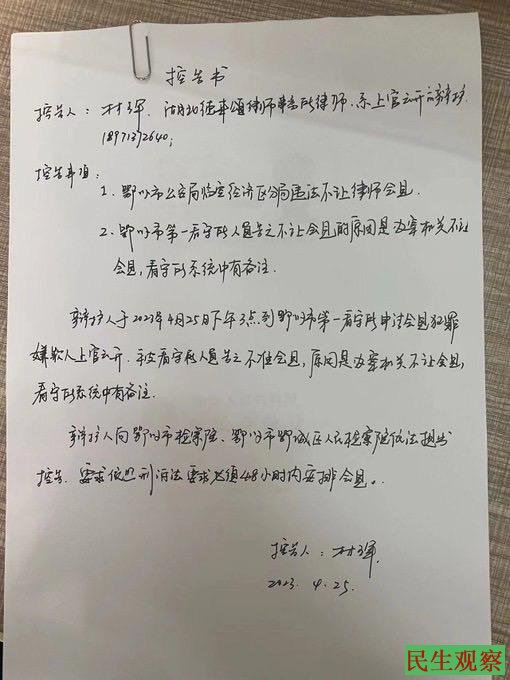 控告书
控告人：林军，湖北维本颂律师事务所律师。系上官云开辩护人
18971372640；
控告事项：
1、鄂州市公安局临空经济区分局违法不让律师会见。
2、鄂州市第一看守所人员告之不让会见的原因是办案机关不让
会见，看守所系统中有备注。
辩护人于2023年4月25日下午3点到鄂州市第一看守所申请会见犯罪
嫌疑人上官云开，被看守所人员告之不准会见，原因是办案机关不让会见，
看守所系统中有备注。
辩护人向鄂州市检察院、鄂州市鄂城区人民检察院依法提出
控告，要求依照刑诉法要求必须48小时内安排会见。
控告人：林军
2023. 4. 25.
民生观察